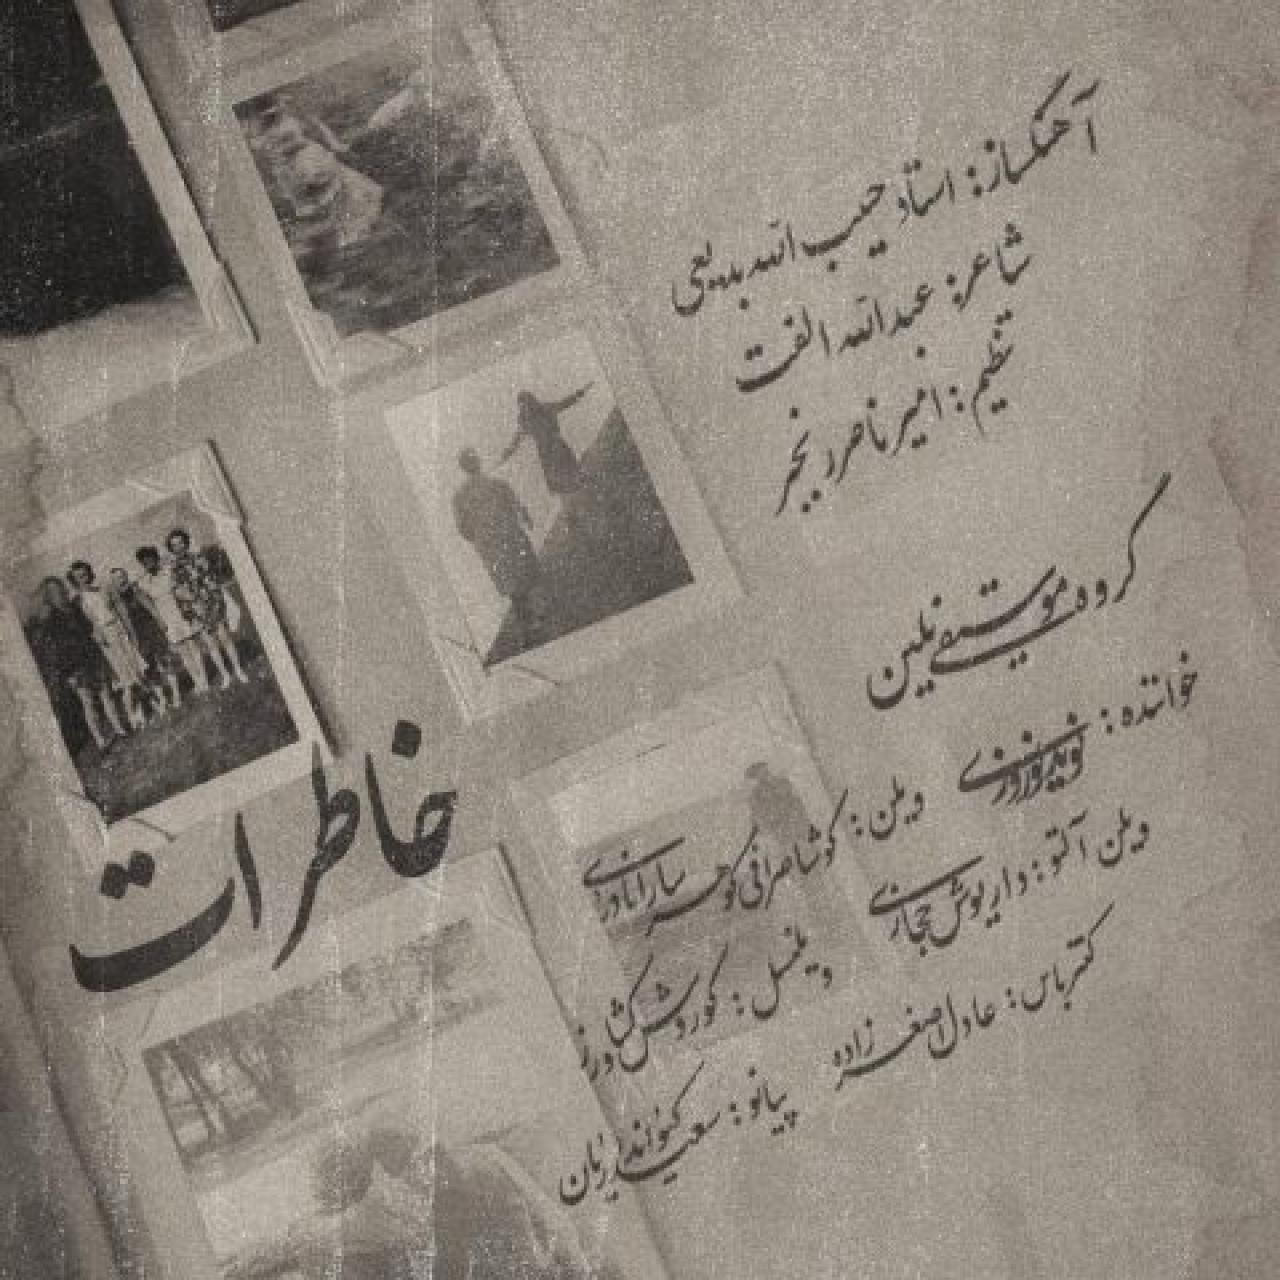 آهنگساز: استاد حبیب الله بدیعی
شاعر: عبدالله الفت
تنظیم: امیرناصر رنجبر
گروه موسیقی نیلین
خواننده: نوید نوروزی
ویلن: کوشا صرافی گوهر سارا نادری
ویلن آلتو: داریوش حجازی
ویلنسل: کوروش کشاورز
کنترباس: عادل اصغرزاده
پیانو: سعید
خاطرات